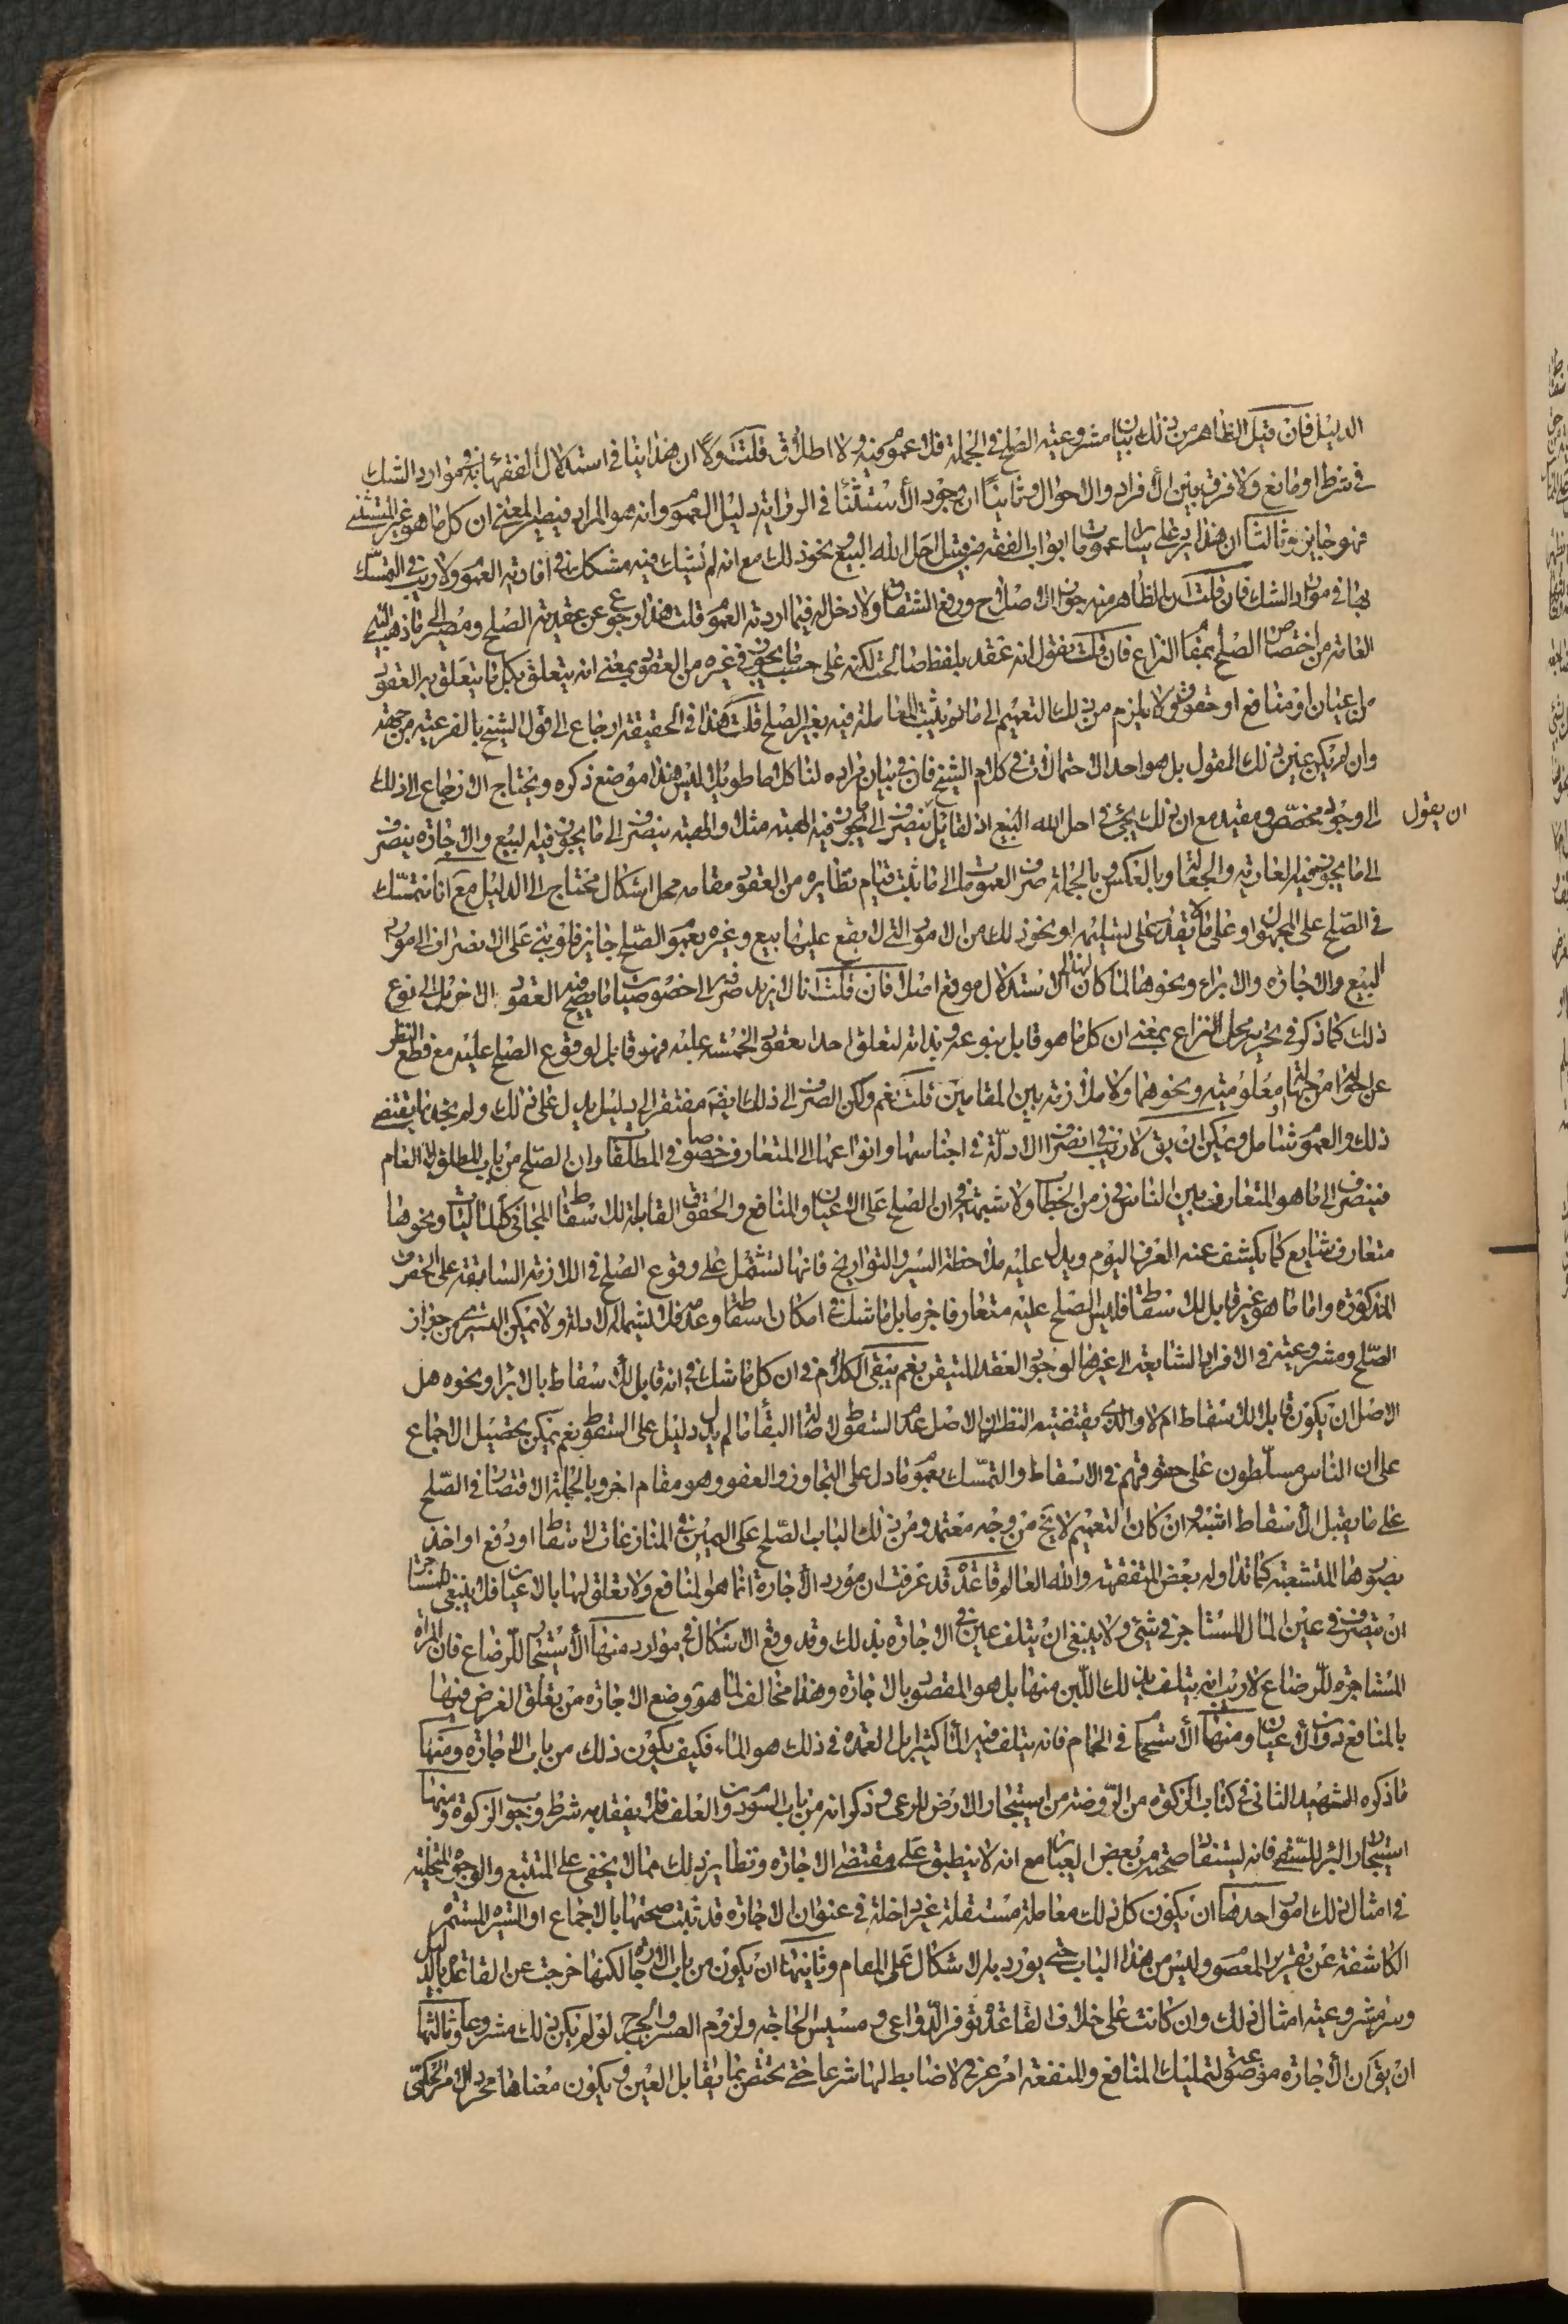 الدليل فان قيل الظاهر من ذلك بيان مشروعيته الصلح فى الجملة فلا عموم فيه ولا اطلاق قلت اولا ان هذا ينافى استدلال الفقهاء به فى موارد الشك
فى شرط او مانع ولا فرق بين الافراد والاحوال وثانيا ان وجود الاستثناء فى الرواية دليل العموم وانه هو المراد فيصير المعنى ان كل ما هو غير المستثنى
فهو جايز وثالثا ان هذا يرد على ساير عمومات ابواب الفقه من قبيل احل الله البيع ونحو ذلك مع انه لم يشك فيه مشكك فى افادته العموم ولا ريب فى التمسك
بها فى موارد الشك فان قلت ان الظاهر منه جواز الاصلاح ورفع الشقاق ولا دخل له فيما اردته العموم قلت هذا رجوع عن عقدية الصلح ومصير الى ما ذهب اليه
العامة من اختصاص الصلح بمقام النزاع فان قلت نقول انه عقد بلفظ صالحت لكنه على حسب ما يجوز فى غيره من العقود بمعنى انه يتعلق بكل ما يتعلق به العقود
من اعيان او منافع او حقوق ولا يلزم من ذلك التعميم الى ما لم يثبت المعاملة فيه بغير الصلح قلت هذا فى الحقيقة ارجاع الى قول الشيخ بالفرعية من جهة
وان لم يكن عين ذلك المقول بل هو احد الاحتمالات فى كلام الشيخ فان فى بيان مراده لنا كلاما طويلا ليس هذا موضع ذكره ويحتاج الارجاع الى ذلك
الى وجود مخصص ومقيد مع ان ذلك يجئ فى احل الله البيع اذ لقائل ان يقول ينصرف الى ما يجوز فيه الهبة مثلا والهبة ينصرف الى ما يجوز فيه البيع والاجارة ينصرف
الى ما يجوز فيه العارية والجعالة وبالعكس وبالجملة صرف العمومات الى ما ثبت قيام نظايره من العقود مقامه محل اشكال محتاج الى الدليل مع انا نتمسك
فى الصلح على المجهول او على ما لا يقدر على تسليمه او نحو ذلك من الامور التى لا يقع عليها بيع وغيره بعموم الصلح جايز فلو بنى على الانصراف الى مورد
البيع والاجارة والابراء ونحوها لما كان لهذا الاستدلال موقع اصلا فان قلت انا لا نريد صرفه الى خصوصيات ما يصح فيه العقود الاخر بل الى نوع
ذلك كما ذكر فى تحرير محل النزاع بمعنى ان كل ما هو قابل بنوعه وبذاته لتعلق احد العقود الخمسة عليه فهو قابل لوقوع الصلح عليه مع قطع النظر
عن احواله من جهالة ومعلومية ونحوهما ولا ملازمة بين المقامين قلت نعم ولكن الصرف الى ذلك ايضا مفتقر الى دليل يدل على ذلك ولم نجد ما يقتضى
ذلك والعموم شامل ويمكن ان يق لا ريب فى انصراف الادلة فى اجناسها وانواعها الى المتعارف خصوصا فى المطلقات وان الصلح من باب المطلق لا العام
فينصرف الى ما هو المتعارف بين الناس فى زمن الخطاب ولا شبهة فى ان الصلح على الاعيان والمنافع والحقوق القابلة للاسقاط المجانى كالخيارات ونحوها
متعارف شايع كما يكشف عنه العرف اليوم ويدل عليه ملاحظة السير والتواريخ فانها تشتمل على وقوع الصلح فى الازمنة السابقة على الحقوق
المذكورة واما ما هو غير قابل للاسقاط فليس الصلح عليه متعارفا جزما بل ما شك فى امكان اسقاطه وعدمه فلا يشمله الادلة ولا يمكن التسرى من جواز
الصلح ومشروعيته فى الافراد الشايعة الى غيرها لوجوب العقد للمتيقن نعم يبقى الكلام فى ان كل ما شك فى انه قابل للاسقاط بالابراء ونحوه هل
الاصل ان يكون قابلا للاسقاط ام لا والذى يقتضيه النظر ان الاصل عدم السقوط لاصالة البقاء ما لم يدل دليل على السقوط نعم يمكن تحصيل الاجماع
على ان الناس مسلطون على حقوقهم فى الاسقاط والتمسك بعموم ما دل على التجاوز والعفو وهو مقام اخر وبالجملة الاقتصار فى الصلح
على ما يقبل الاسقاط اشبه وان كان التعميم لا يخ من وجه معتمد ومن ذلك الباب الصلح على اليمين فى المنازعات لاسقاط او دفع او اخذ
بصورها المتشعبة كما تداوله بعض المتفقهة والله العالم قاعدة قد عرفت ان مورد الاجارة انما هو المنافع ولا تعلق لها بالاعيان فلا ينبغى للمستاجر
ان يتصرف فى عين المال المستاجر فى شئ ولا ينبغى ان يتلف عين فى الاجارة بذلك وقد وقع الاشكال فى موارد منها الاستيجار للرضاع فان المراة
المستاجرة للرضاع لا ريب انه يتلف بذلك اللبن منها بل هو المقصود بالاجارة وهذا مخالف لما هو وضع الاجارة من تعلق الغرض فيها
بالمنافع دون الاعيان ومنها الاستحمام فى الحمام فانه يتلف فيه الماء كثيرا بل العمدة فى ذلك هو الماء فكيف يكون ذلك من باب الاجارة ومنها
ما ذكره الشهيد الثانى فى كتاب الزكوة من الروضة من استيجار الارض للرعى وذكر انه من باب السوم دون العلف فلا يفقد به شرط وجوب الزكوة ومنها
استيجار البئر للستقى فانه يستفاد صحته من بعض العبائر مع انه لا ينطبق على مقتضى الاجارة ونظاير ذلك مما لا يخفى على المتتبع والوجوه المتخيلة
فى امثال ذلك امور احدها ان يكون كل ذلك معاملة مستقلة غير داخلة فى عنوان الاجارة قد ثبت صحتها بالاجماع او السيرة المستمرة
الكاشفة عن تقرير المعصوم وليس من هذا الباب حتى يورد بالاشكال على المقام وثانيها ان يكون من باب الاجارة لكنها خرجت عن القاعدة بالدليل
وسر مشروعية امثال ذلك وان كانت على خلاف القاعدة توفر الدواعى ومسيس الحاجة ولزوم العسر والحرج لو لم يكن ذلك مشروعا وثالثها
ان يق ان الاجارة موضوعة لتمليك المنافع والمنفعة امر عرفى لا ضابط لها شرعا حتى تختص بما يقابل العين ويكون معناها مجرد الامر الحكمى
ان يقول